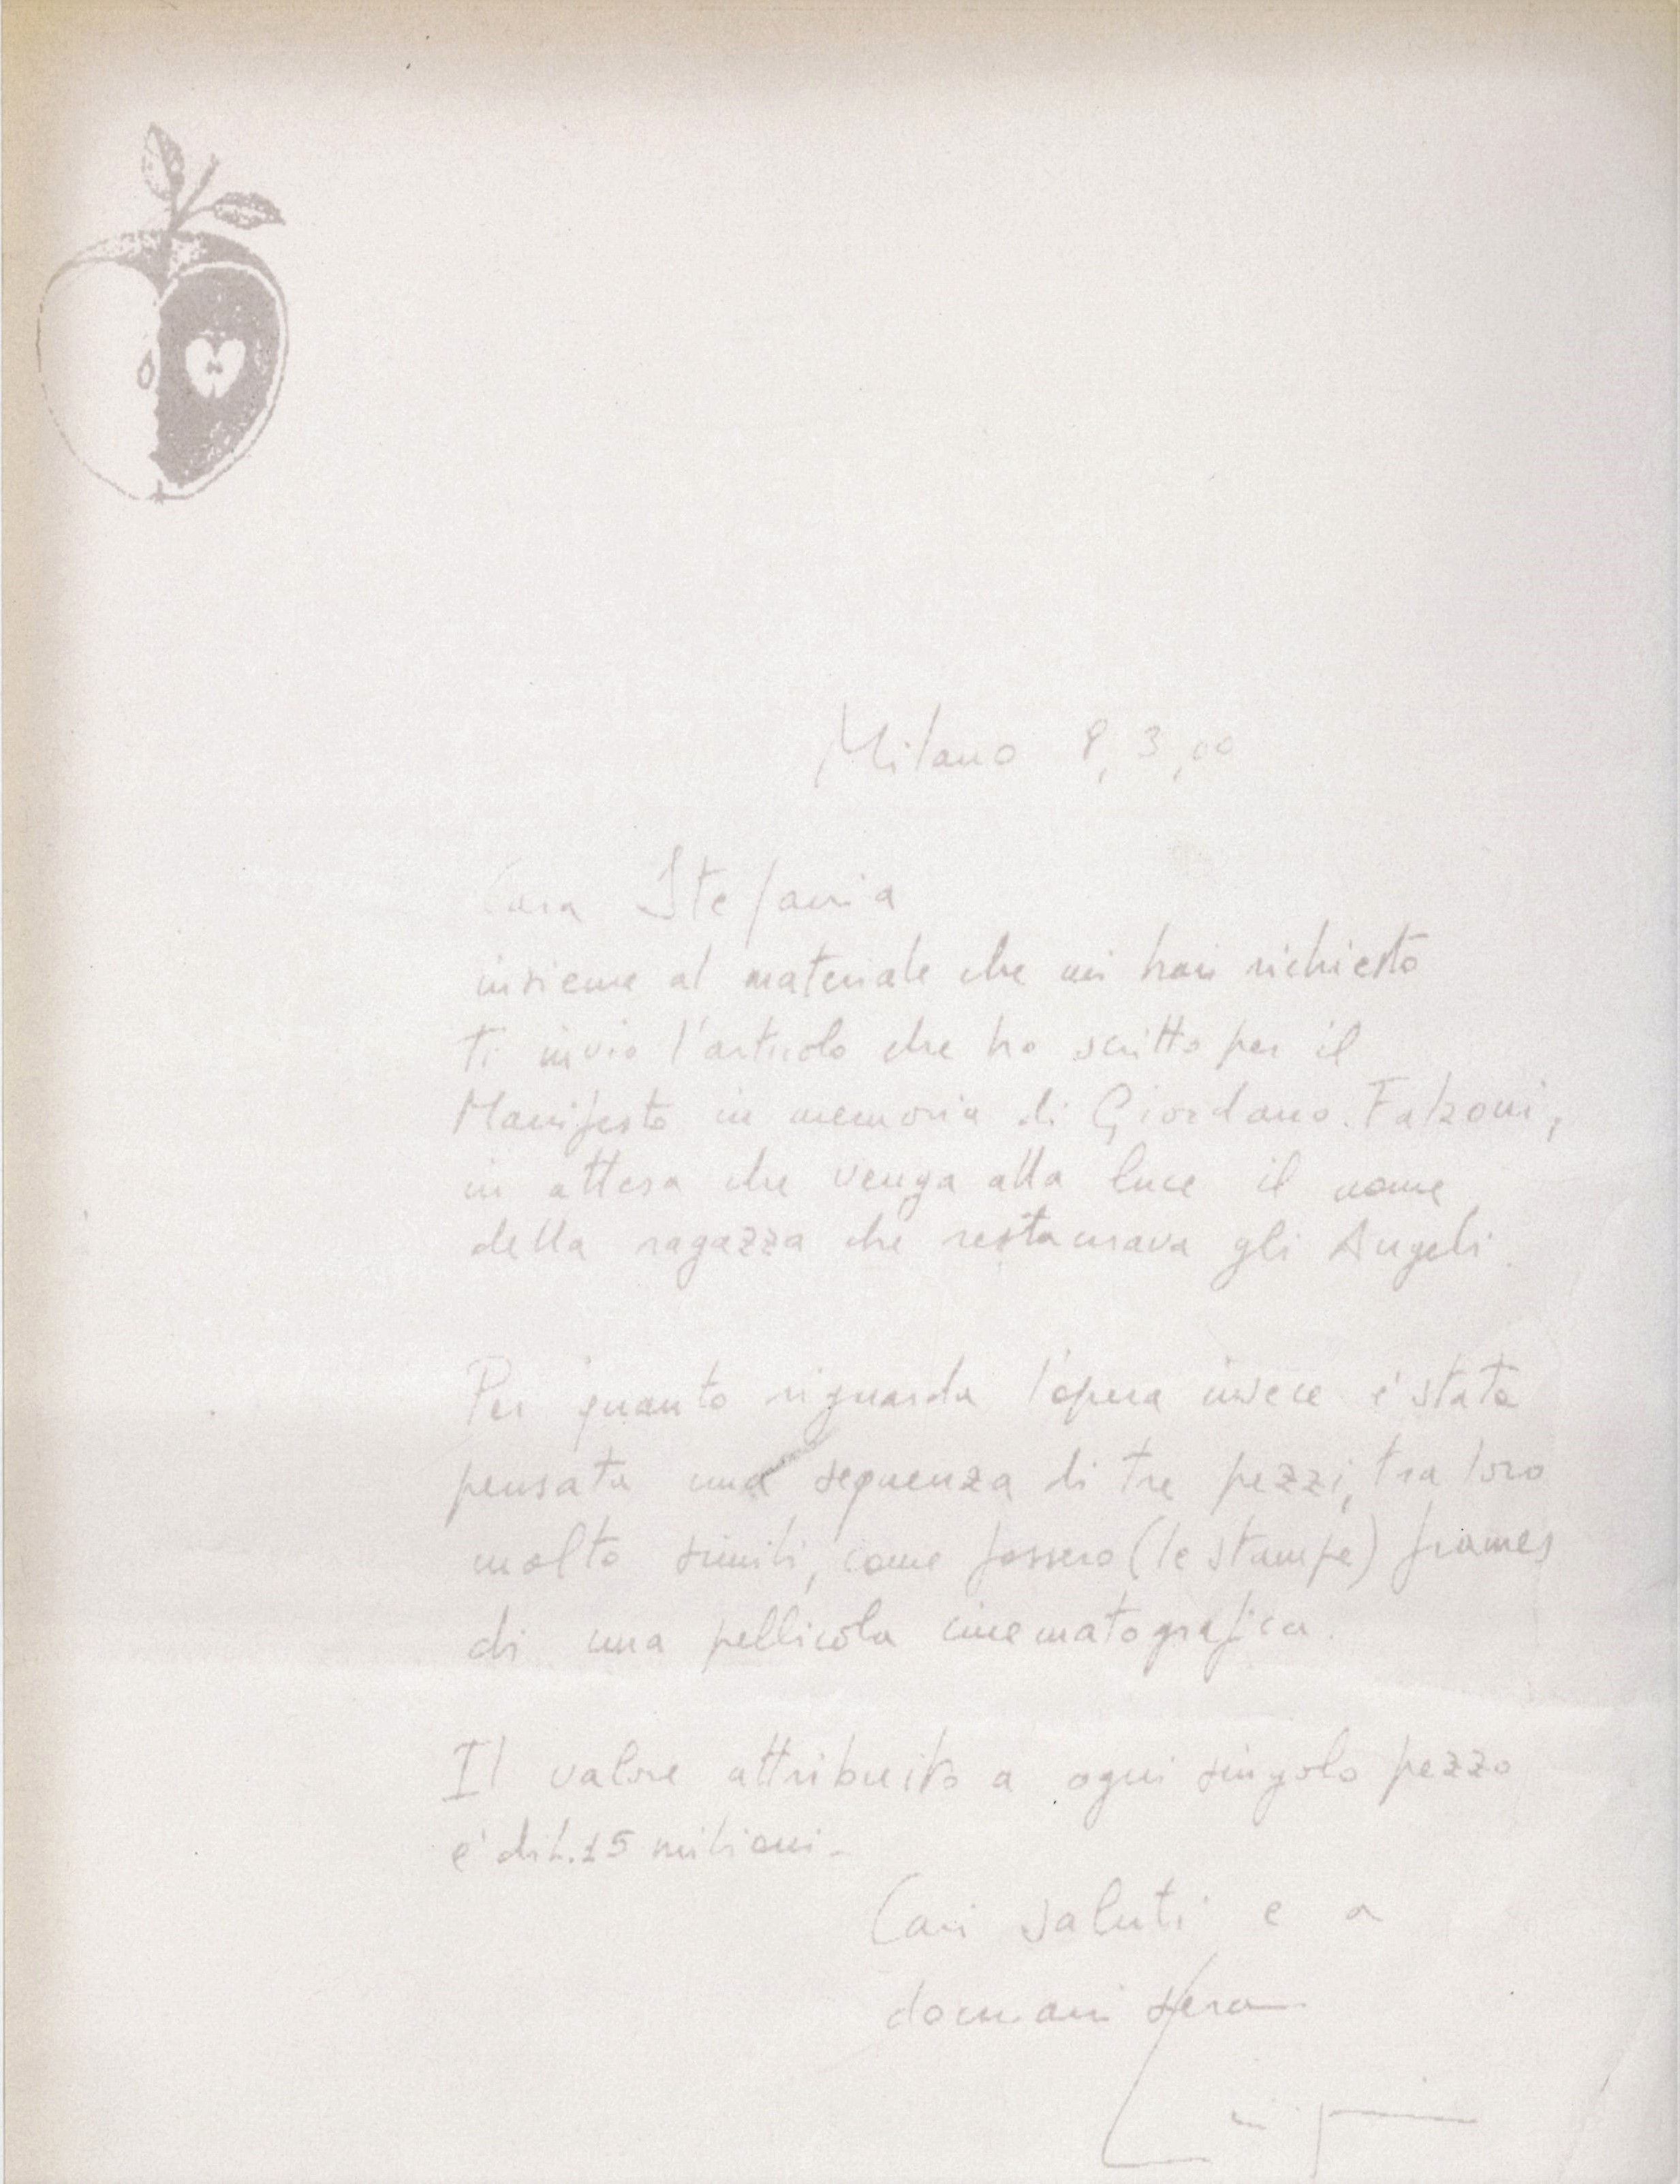 Milano 8,3,00
Cara Stefania
insieme al materiale che mi hai richiesto
Ti invio l'articolo che ho scritto per il
Manifesto in memoria di Giordano Falzoni,
in attesa che venga alla luce il nome
della ragazza che restaurava gli Angeli.
Per quanto riguarda l'opera invece è stata
pensata una sequenza di tre pezzi, tra loro
molto simili, come fossero (le stampe) frames
di una pellicola cinematografica.
Il valore attribuito a ogni singolo pezzo
e' di L. 15 milioni.
Cari saluti e a
domani sera